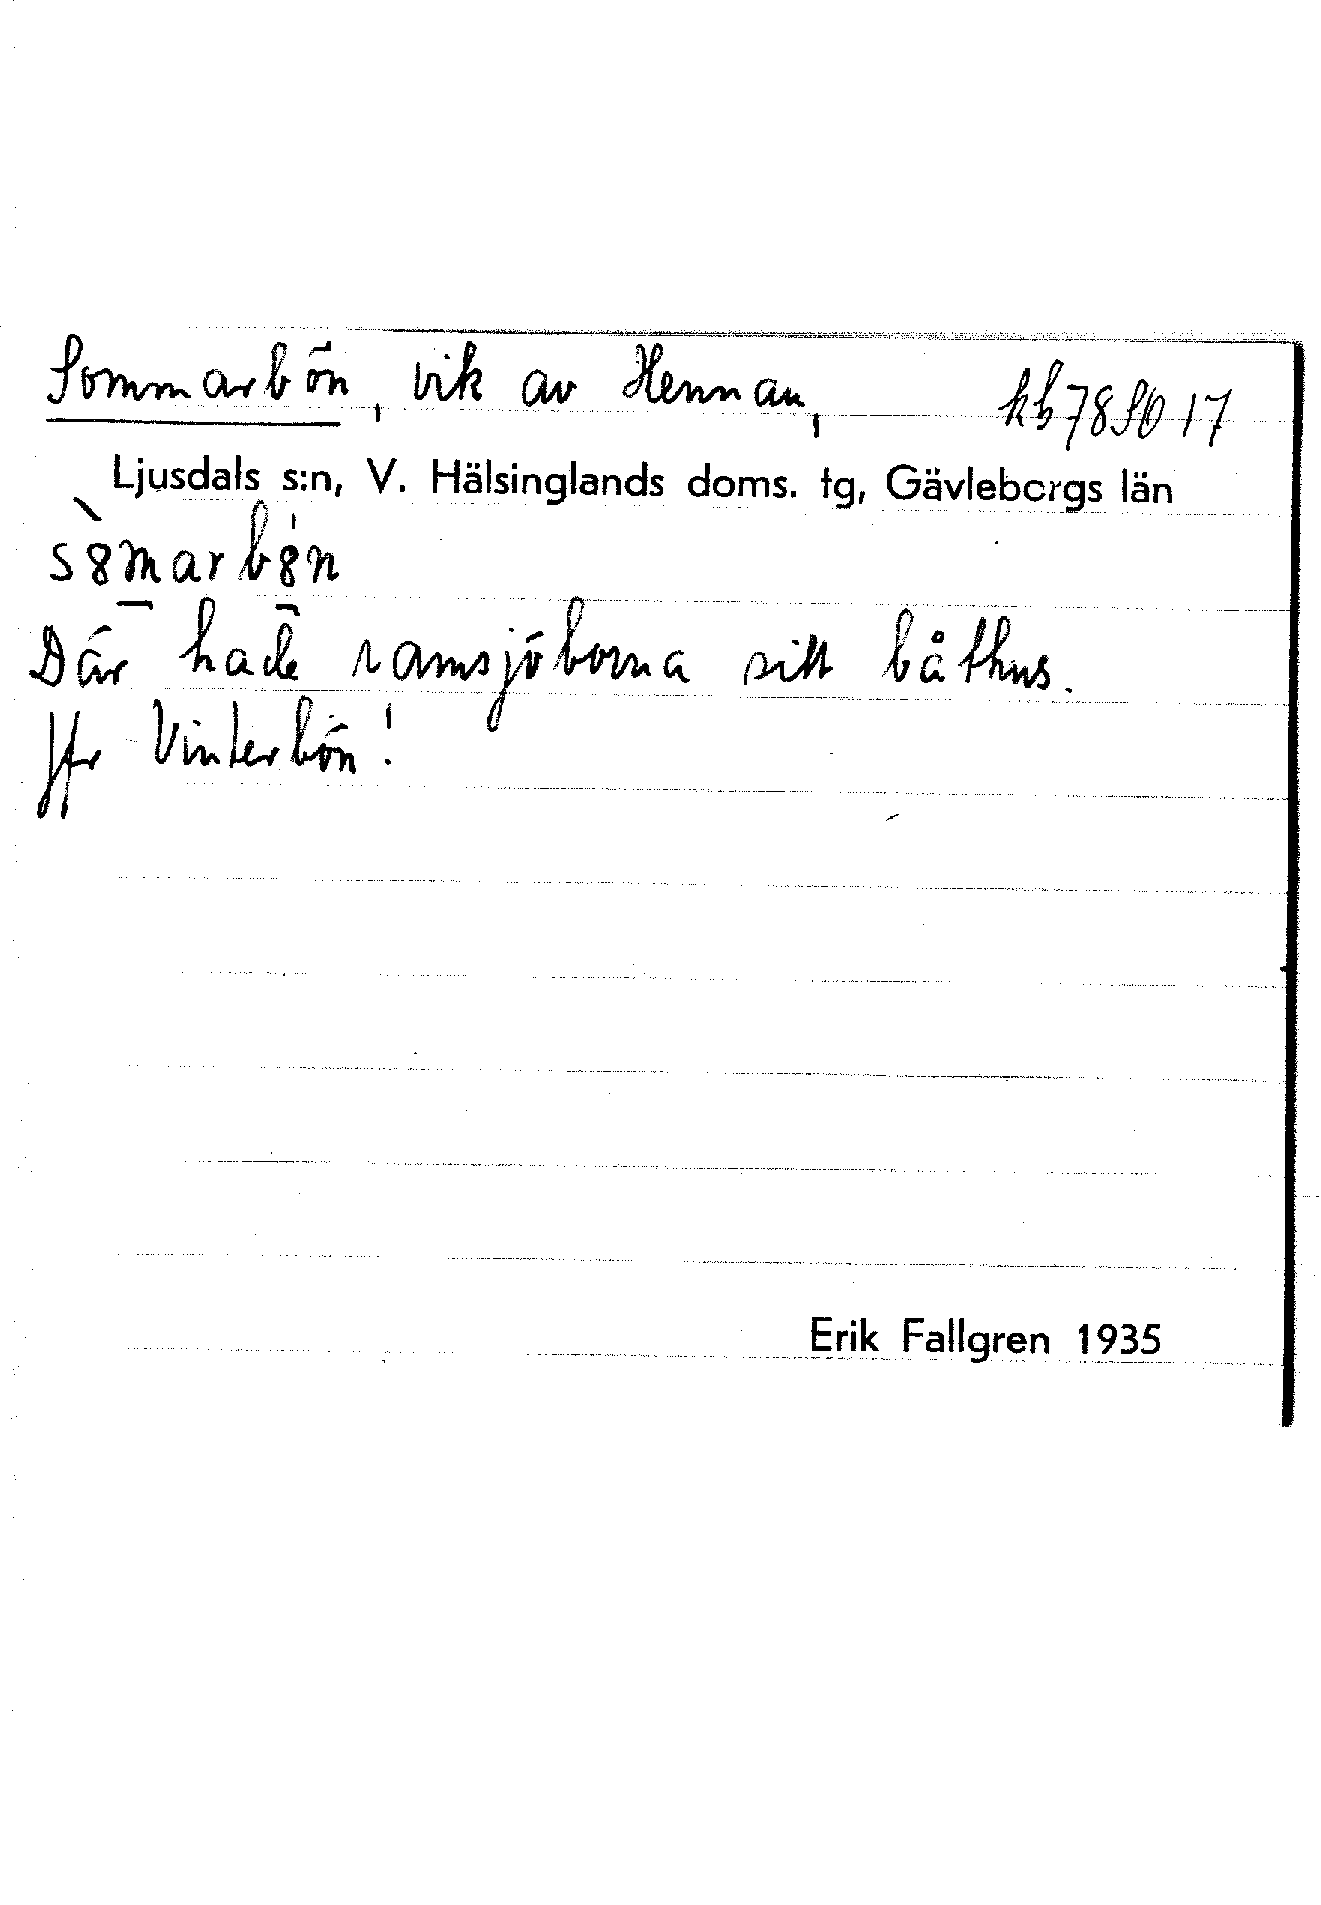 Sommarbön, vik av Hennan, kb 78 90 17
Ljusdals s:n, V. Hälsinglands doms. tg, Gävleborgs län
Där hade ramsjöborna sitt båthus.
Jfr Vinterbön!
Erik Fallgren 1935